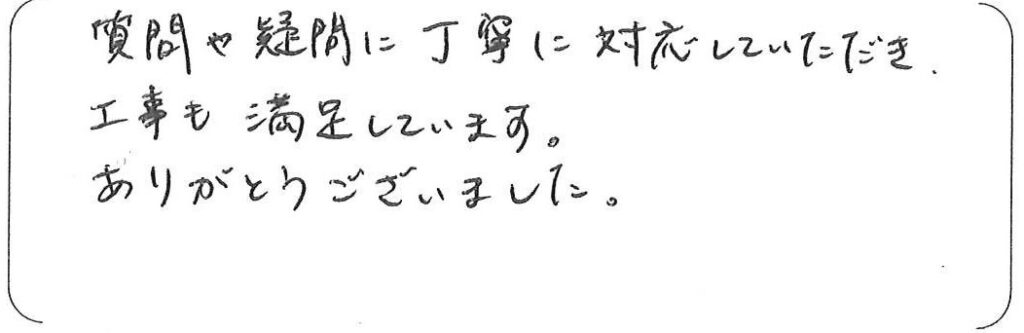 質問や疑問に丁寧に対応していただき、
工事も満足しています。
ありがとうございました。